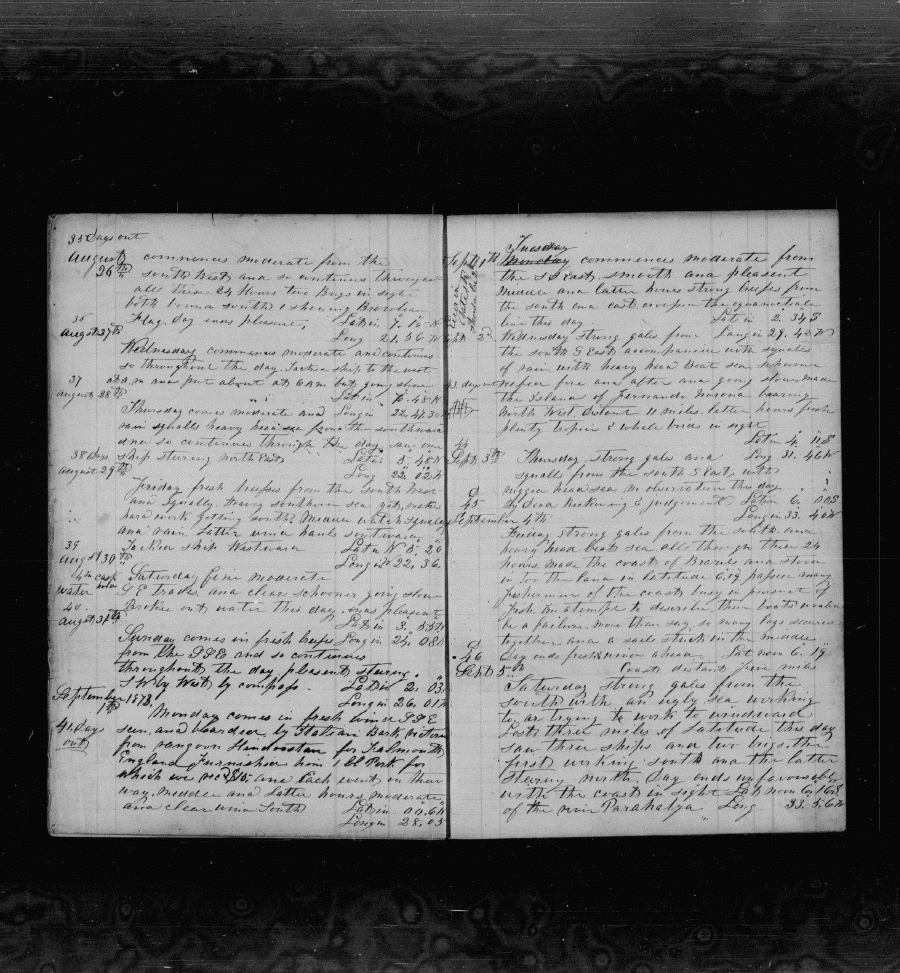 35 Days out
August 26th commences moderate from the
south West and so continues through
all these 24 Hours two Brigs in sight
both bound south 1 showing
Flag. day ends pleasant, Lat in 7. 10 N
36
August 27th Long 21. 36 W
Wednesday commences moderate and continues
so throughout the day. Tack ship to the west
at a.m and put about at 6 a.m but going slow
37
August 28th Lat in 6. 48 N
Thursday comes moderate and Long in 22. 41 30
rain squalls heavy sea from the southward
and so continues through the day,
38 Days ship stering north East Lat in 5. 48 N
August 29th Long 22. 02 W
Friday fresh breeses from the South West
and squally. Heavy southern sea
hard work getting south. Middle watch squally
and rain. Latter wind hauls southward
39
August 30th Tacked ship Westward Lat in N 5. 20
Long in W 22. 36.
4th cask Saturday fine moderate
water S E trades and clear schooner going slow
40 Broke out water this day. pleasant
August 31st Lat in 3. 55 N
Sunday comes in fresh breeses Long in 24. 08 W
from the SSE and so continues
throughout the day pleasant stering
S W by West by compass. Lat in 2. 03
September 1st 1878. Long in 26. 01 W
Monday comes in fresh wind SSE
41 Days out sun, and boarded by Italian Bark
from rangoon Hindoostan for Falmouth
England Furnished him 1 bl Pork for
which we rec $15, and Each went on their
way. Middle and latter hours moderate
and clear wind South Lat in 00. 6 N
Long in 28. 05
Tuesday
Sept 1th Monday commences moderate from
the SS East. smooth and pleasant
Middle and latter hours strong breeses from
the south and east. the equanoctial
line this day Lat in 2. 34 S
Sept 2d Wednesday Strong gales from Long in 29. 42 W
the south S East accompanied with squals
of rain with heavy head Beat sea.
43 days out reefed fore and after and going slow made
the Island of Fernando Norona bearing
North West. Distant 11 miles. latter hours fresh
plenty & whale birds in sight
44 Lat in 4. 11 S
Sept 3th Thursday. strong gales and Long 31. 46 W
squalls from the south S East with
head sea. no observation this day
45 By Dead Reckoning & judgement Lat in 6. 00 S
September 4th Long in 33. 40 W
Friday strong gales from the south and
heavy head beat sea all through these 24
hours. made the coast of Brazil and stood
in for the land in latitude 6.19 passed many
fishermen of the coast busy in pursuit of
fish. An attempt to describe their boats would
be a failure. more than say, so many logs secured
together and a sail stuck in the middle
46 Day ends fresh & wind ahead. Lat noon 6. 19
Sept 5th Coast distant five miles
Saturday strong gales from the
south with an ugly sea. working
to or trying to work to windward
Lost three miles of Latitude this day
saw three ships and two brigs, the
first working south and the latter
stering north. Day ends unfavourable
with the coast in sight Lat noon 6. 16 S
of the river Parahalya Long 33. 56 W